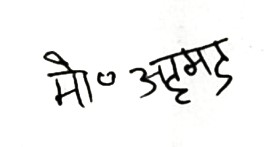 मो० अहमद